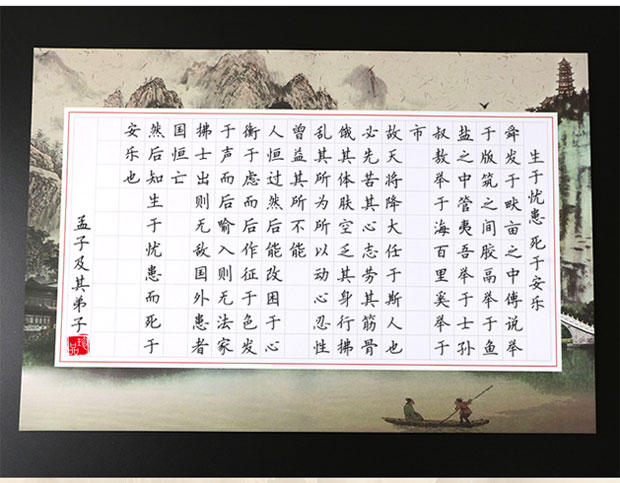 生于忧患 死于安乐
舜发于畎亩之中傅说举
于版筑之间胶鬲举于鱼
盐之中管夷吾举于士孙
叔敖举于海百里奚举于
市
故天将降大任于斯人也
必先苦其心志劳其筋骨
饿其体肤空乏其身行拂
乱其所为所以动心忍性
曾益其所不能
人恒过然后能改困于心
衡于虑而后作征于色发
于声而后喻入则无法家
拂士出则无敌国外患者
国恒亡
然后知生于忧患而死于
安乐也
孟子及其弟子
珍品